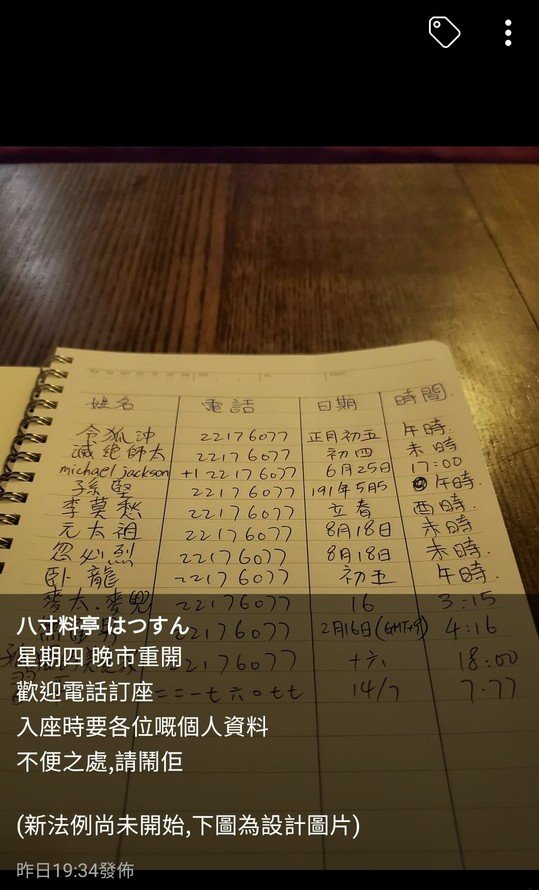 姓名 電話 日期 時間
令狐沖 22176077 正月初五 午時.
滅絕師太 22176077 初四 未時.
michael jackson +1 22176077 6月25日 17:00
孫堅 22176077 191年5月5 午時.
李莫愁 22176077 立春 酉時.
元太祖 22176077 8月18日 未時.
忽必烈 22176077 8月18日 未時.
臥龍 22176077 初五 午時.
麥太.麥兜 22176077 16 3:15
22176077 2月16日(GMT+9) 4:16
22176077 十六 18:00
二二一七六〇七七 14/7 7.77
八寸料亭 はつすん
星期四 晚市重開
歡迎電話訂座
入座時要各位嘅個人資料
不便之處,請鬧佢
(新法例尚未開始,下圖為設計圖片)
昨日19:34發佈